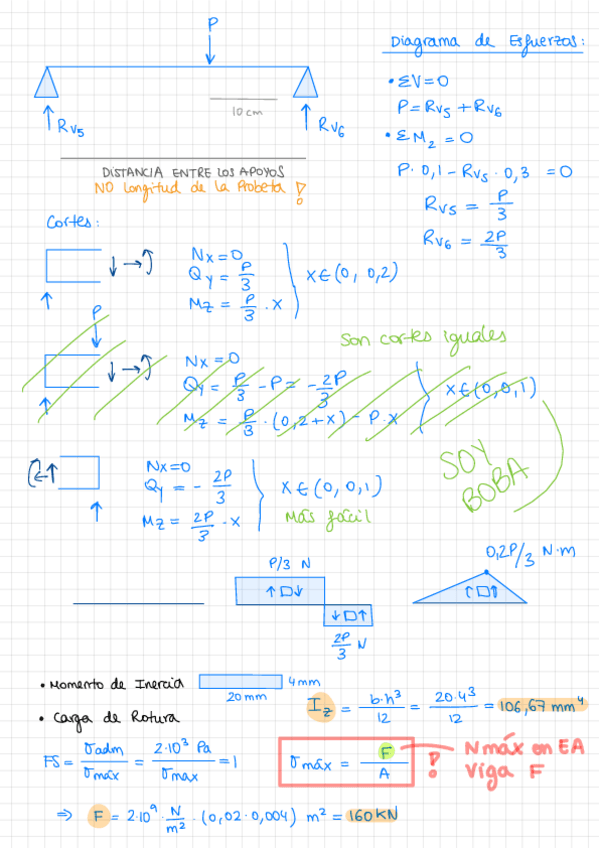 P
10 cm
Rv5
Rv6
DISTANCIA ENTRE LOS APOYOS
NO Longitud de la Probeta !
Diagrama de Esfuerzos:
• ΣV=0
P=Rv5 + Rv6
• ΣMz = 0
P · 0,1 - Rv5 · 0,3 = 0
Rv5 = P/3
Rv6 = 2P/3
Cortes:
Nx=0
Qy = P/3
Mz = P/3 · x
x ∈ (0, 0,2)
P
Son cortes iguales
Nx=0
Qy = P/3 - P = -2P/3
Mz = P/3 · (0,2+x) - P·x
x ∈ (0, 0,1)
SOY
BOBA
Nx=0
Qy = - 2P/3
Mz = 2P/3 · x
x ∈ (0, 0,1)
Más fácil
P/3 N
2P/3 N
0,2P/3 N·m
• Momento de Inercia
4mm
20mm
Iz = b·h³/12 = 20·4³/12 = 106,67 mm⁴
• Carga de Rotura
FS = σadm/σmáx = 2·10⁹ Pa/σmax = 1
σmáx = F/A
!
N máx en EA
Viga F
⇒ F = 2·10⁹ · N/m² · (0,02·0,004) m² = 160 KN